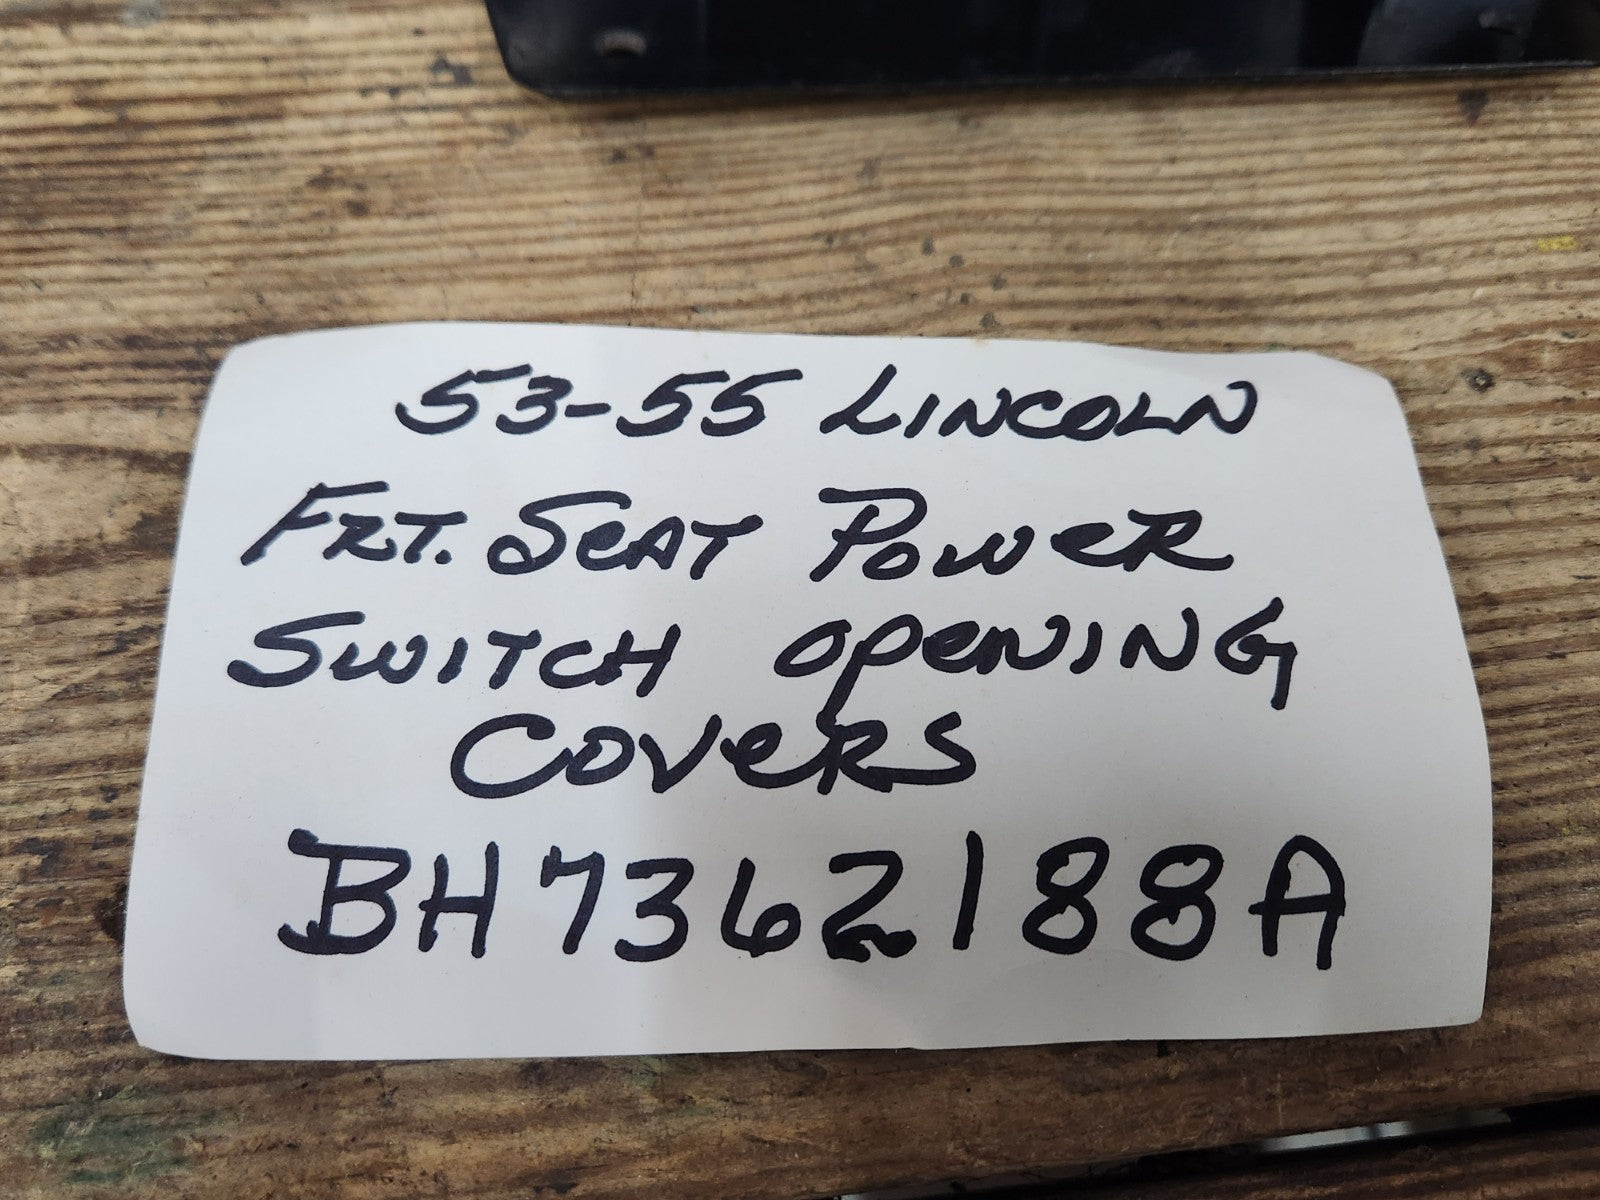 53-55 LINCOLN
FRT. SEAT POWER
SWITCH OPENING
COVERS
BH7362188A